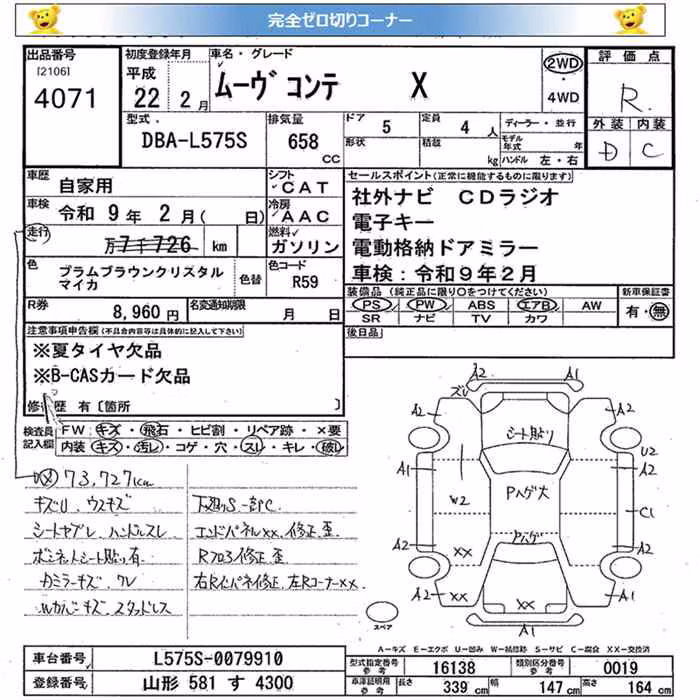 完全ゼロ切りコーナー
出品番号
[2106]
4071
初度登録年月
平成
22年 2月
車名・グレード
ムーヴ コンテ X
2WD
・
4WD
評価点
R
外装 内装
D C
型式
DBA-L575S
排気量
658
CC
ドア 5
定員 4 人
形状
積載 kg
ディーラー・並行
モデル年式 年
ハンドル 左・右
車歴
自家用
車検 令和 9年 2月( 日)
走行
万7千726 km
シフト
CAT
冷房
AAC
燃料
ガソリン
色
プラムブラウンクリスタル
マイカ
色替
色コード
R59
R券 8,960円
名変通知期限 月 日
セールスポイント(正常に機能するものに限ります)
社外ナビ CDラジオ
電子キー
電動格納ドアミラー
車検:令和9年2月
装備品(純正品に限り○をつけてください)
PS PW ABS エアB AW
SR ナビ TV カワ
新車保証書
有・無
後日品
注意事項申告欄(不具合内容等は具体的に記入して下さい)
※夏タイヤ欠品
※B-CASカード欠品
修復歴 有〔箇所 〕
検査員記入欄
FW キズ・飛石・ヒビ割・リペア跡・×要
内装 キズ・汚レ・コゲ・穴・スレ・キレ・破レ
73,727km
キズU、ウスキズ
シートヤブレ、ハンドルスレ
ボンネットシート貼り有
カミラーキズ、ワレ
スタッドレス
下廻りS、一部C
エンドパネルxx、修正、歪
Rフロア修正、歪
右Rインパネ修正、左Rコーナーxx
ズU
A2
A1
A2
A2
シート貼り
U2
A1
A1
Pハゲ大
W2
C1
A2
A2
Pハゲ
xx
A2
xx
xx
A2
A1
スペア
A-キズ E-エクボ U-凹み W-補修跡 S-サビ C-腐食 XX-交換済
車台番号 L575S-0079910
登録番号 山形 581 す 4300
型式指定番号
参考
16138
類別区分番号
参考
0019
車庫証明用
参考
長さ 339 cm
幅 147 cm
高さ 164 cm